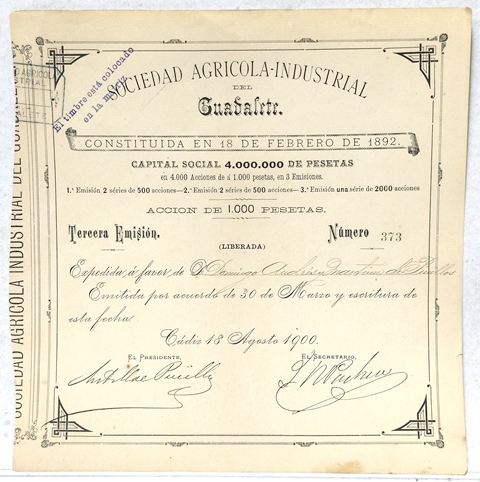 SOCIEDAD AGRICOLA-INDUSTRIAL
DEL
Guadalete.
El timbre está colocado
en la matriz
CONSTITUIDA EN 18 DE FEBRERO DE 1892.
CAPITAL SOCIAL 4.000.000 DE PESETAS
en 4.000 Acciones de á 1.000 pesetas, en 3 Emisiones.
1.ª Emisión 2 séries de 500 acciones—2.ª Emisión 2 séries de 500 acciones—3.ª Emisión una série de 2000 acciones
ACCION DE 1.000 PESETAS.
Tercera Emisión. Número 373
(LIBERADA)
Expedida á favor de D Domingo
Emitida por acuerdo de 30 de Marzo y escritura de
esta fecha.
Cádiz 18 Agosto 1900.
EL PRESIDENTE, EL SECRETARIO,
SOCIEDAD AGRÍCOLA INDUSTRIAL DEL